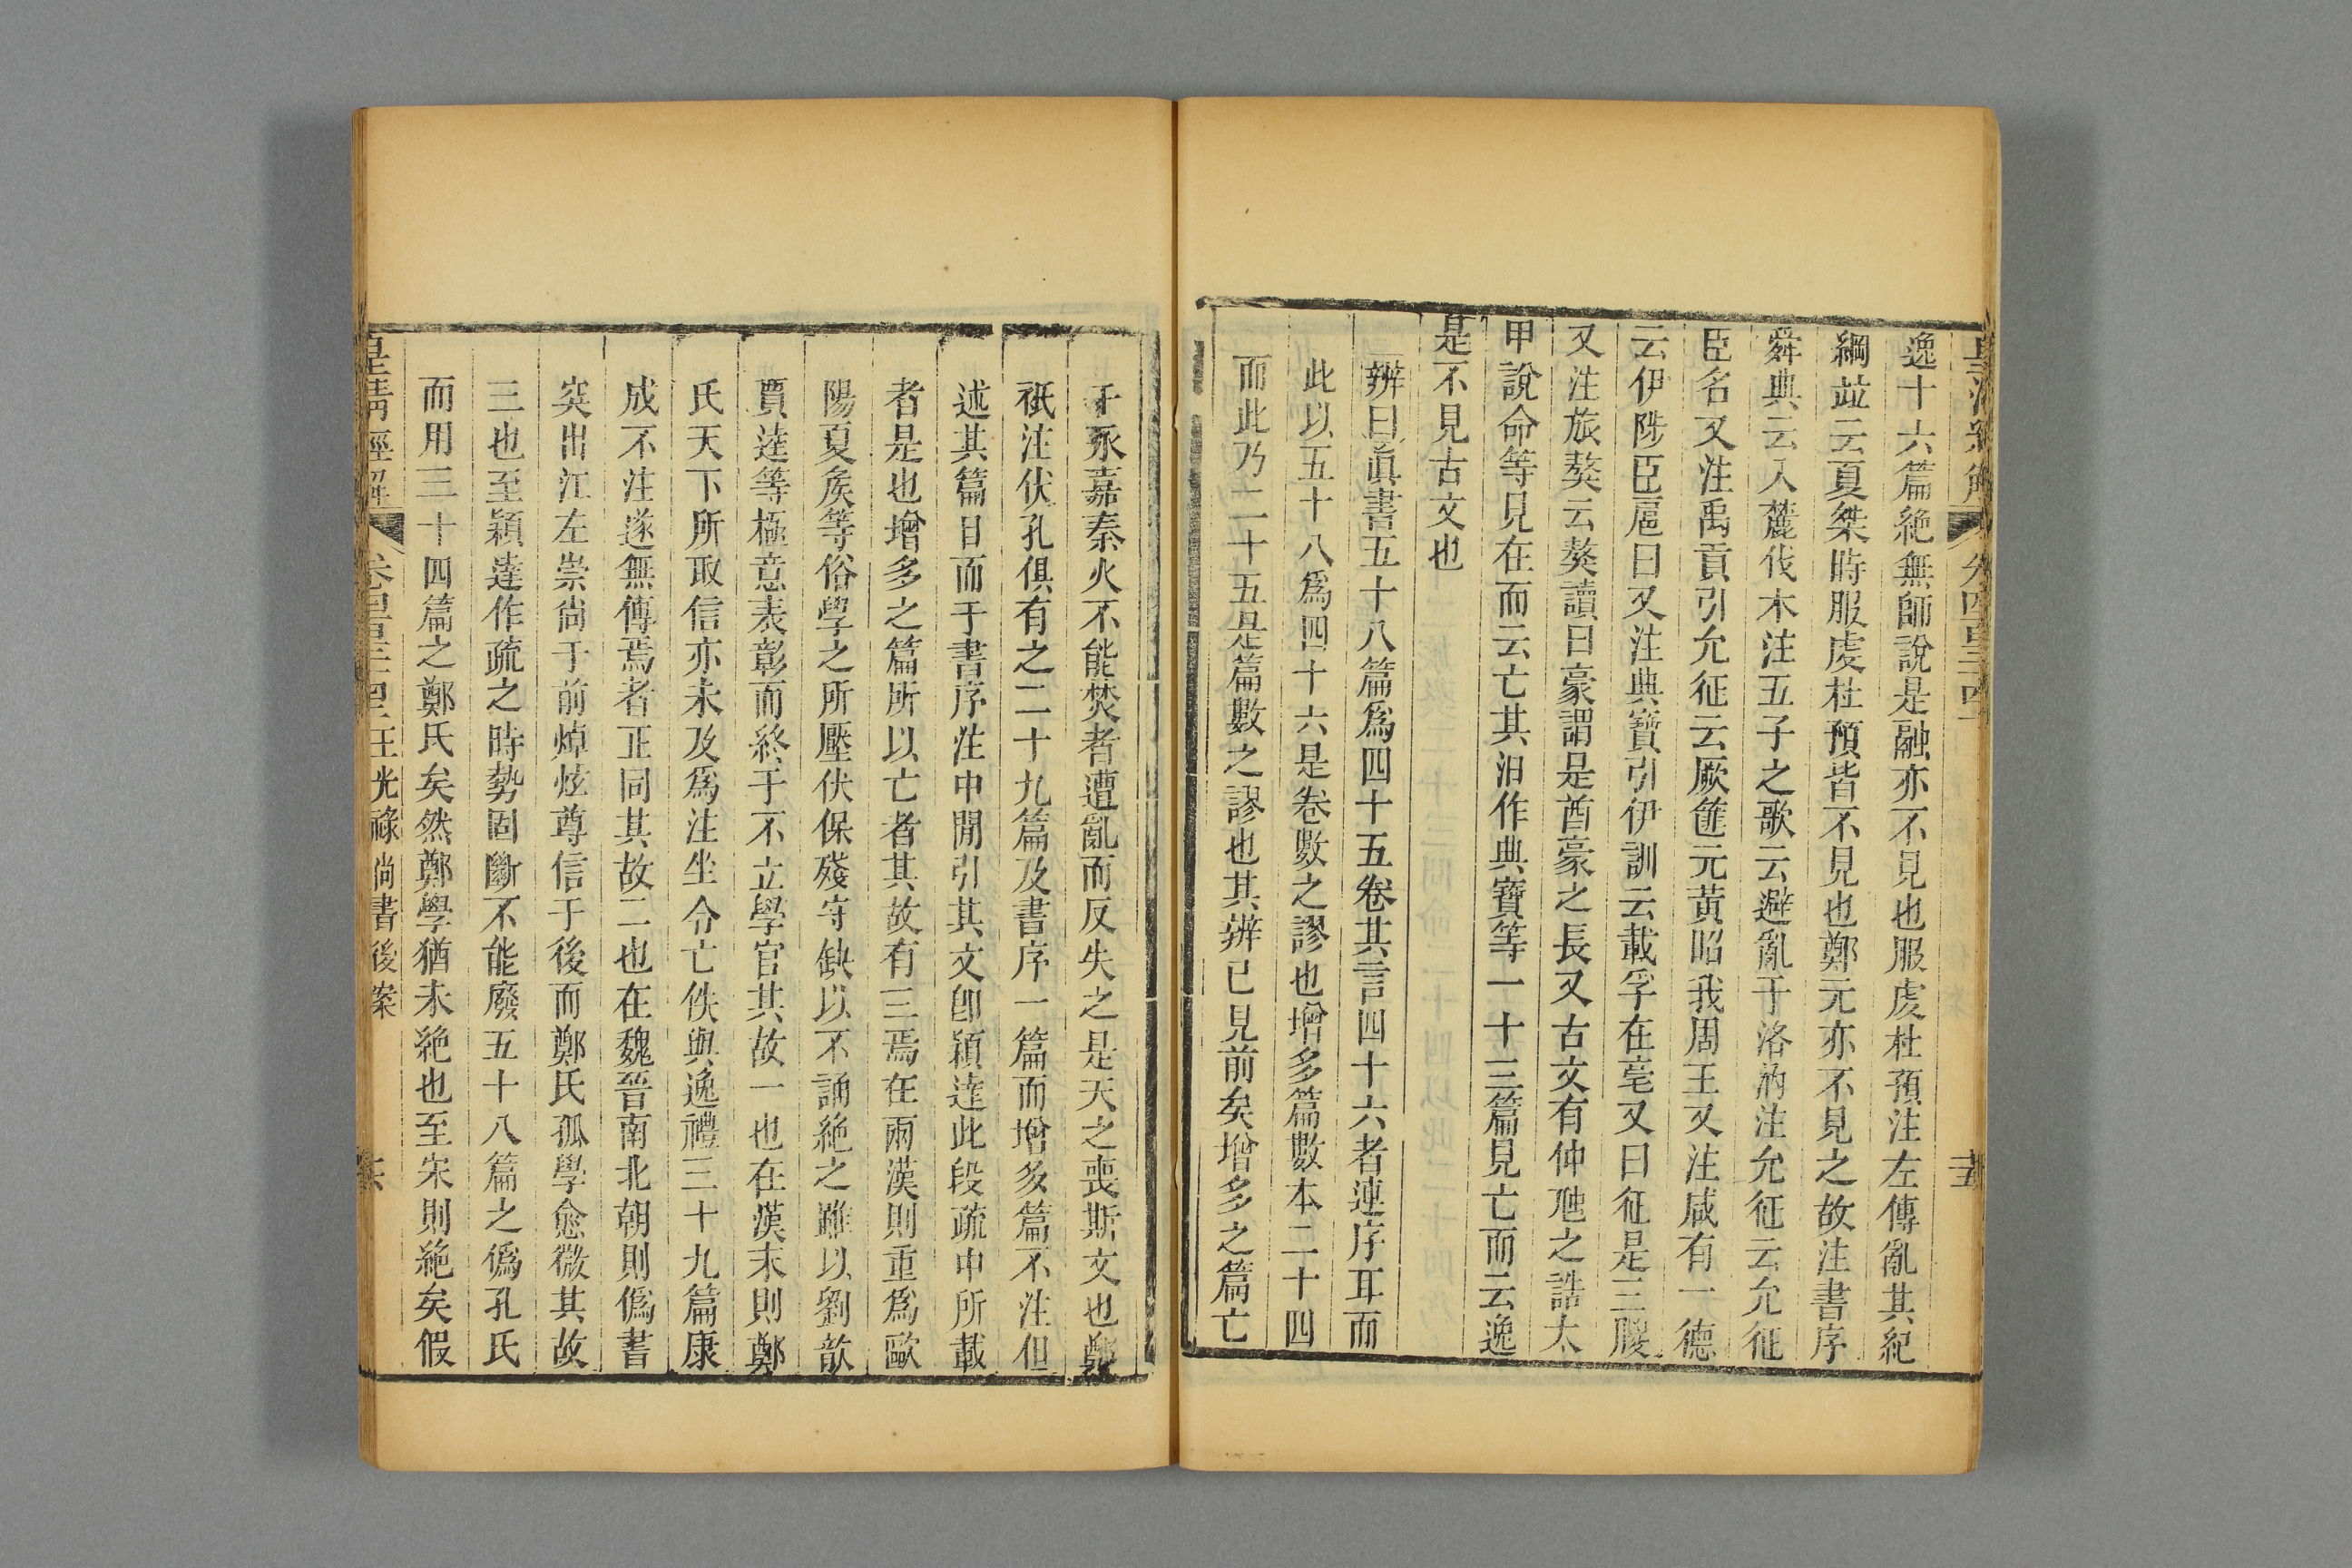 皇清經解 卷四百三十四 十五
逸十六篇絶無師說是融亦不見也服虔杜預注左傳亂其紀
綱竝云夏桀時服虔杜預皆不見也鄭元亦不見之故注書序
舜典云入麓伐木注五子之歌云避亂于洛汭注允征云允征
臣名又注禹貢引允征云厥篚元黃昭我周王又注咸有一德
云伊陟臣扈曰又注典寶引伊訓云載孚在亳又曰征是三朡
又注旅獒云獒讀曰豪謂是酋豪之長又古文有仲虺之誥太
甲說命等見在而云亡其汨作典寶等一十三篇見亡而云逸
是不見古文也
辨曰眞書五十八篇爲四十五卷其言四十六者連序耳而
此以五十八爲四十六是卷數之謬也增多篇數本二十四
而此乃二十五是篇數之謬也其辨已見前矣增多之篇亡
于永嘉秦火不能焚者遭亂而反失之是天之喪斯文也鄭
祇注伏孔俱有之二十九篇及書序一篇而增多篇不注但
述其篇目而于書序注中閒引其文卽穎達此段疏中所載
者是也增多之篇所以亡者其故有三焉在兩漢則重爲歐
陽夏矦等俗學之所壓伏保殘守缺以不誦絶之雖以劉歆
賈逵等極意表彰而終于不立學官其故一也在漢末則鄭
氏天下所取信亦未及爲注坐令亡佚與逸禮三十九篇康
成不注遂無傳焉者正同其故二也在魏晉南北朝則僞書
突出江左崇尙于前焯炫尊信于後而鄭氏孤學愈微其故
三也至穎達作疏之時勢固斷不能廢五十八篇之僞孔氏
而用三十四篇之鄭氏矣然鄭學猶未絶也至宋則絶矣假
皇清經解 卷四百三十四 王光祿尙書後案 十六